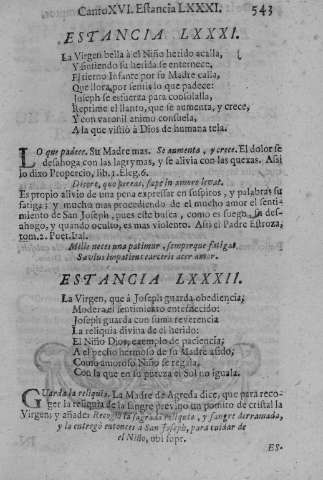 Canto XVI. Estancia LXXXI. 543
ESTANCIA LXXXI.
La Virgen bella à el Niño herido acalla,
Y sintiendo su herida se enternece,
El tierno Infante por su Madre calla,
Que llora por sentir lo que padece:
Joseph se esfuerza para consolalla,
Reprime el llanto, que se aumenta, y crece,
Y con varonil animo consuela,
A la que vistiò à Dios de humana tela.
LO que padece. Su Madre mas. Se aumenta, y crece. El dolor se
desahoga con las lagrymas, y se alivia con las quexas. Assi
lo dixo Propercio, lib. 1. Eleg. 6.
Dicere, quo pereas, sæpe in amore levat.
Es propio alivio de una pena expressar en suspiros, y palabras su
fatiga; y mucho mas procediendo de el mucho amor el senti-
miento de San Joseph, pues este busca, como es fuego, su des-
ahogo, y quando oculto, es mas violento. Assi el Padre Estroza,
tom. 2. Poet. Ital.
Mille neces una patimur, semperque fatigat
Sævius impatiens carceris acer amor.
ESTANCIA LXXXII.
La Virgen, que à Joseph guarda obediencia,
Modera el sentimiento enternecido:
Joseph guarda con suma reverencia
La reliquia divina de el herido:
El Niño Dios, exemplo de paciencia,
A el pecho hermoso de su Madre asido,
Como amoroso Niño se regala,
Con la que en su pureza el Sol no iguala.
GUarda la reliquia. La Madre de Agreda dice, que para reco-
ger la reliquia de la sangre previno un pomito de cristal la
Virgen; y añade: Recogiò la sagrada reliquia, y sangre derramada,
y la entregò entonces à San Joseph, para cuidar de
el Niño, ubi supr.
ES-